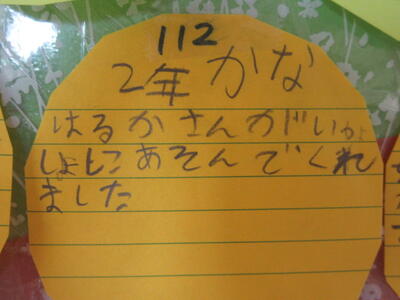 112
2年 かな
はるかさんがいっ
しょにあそんでくれ
ました